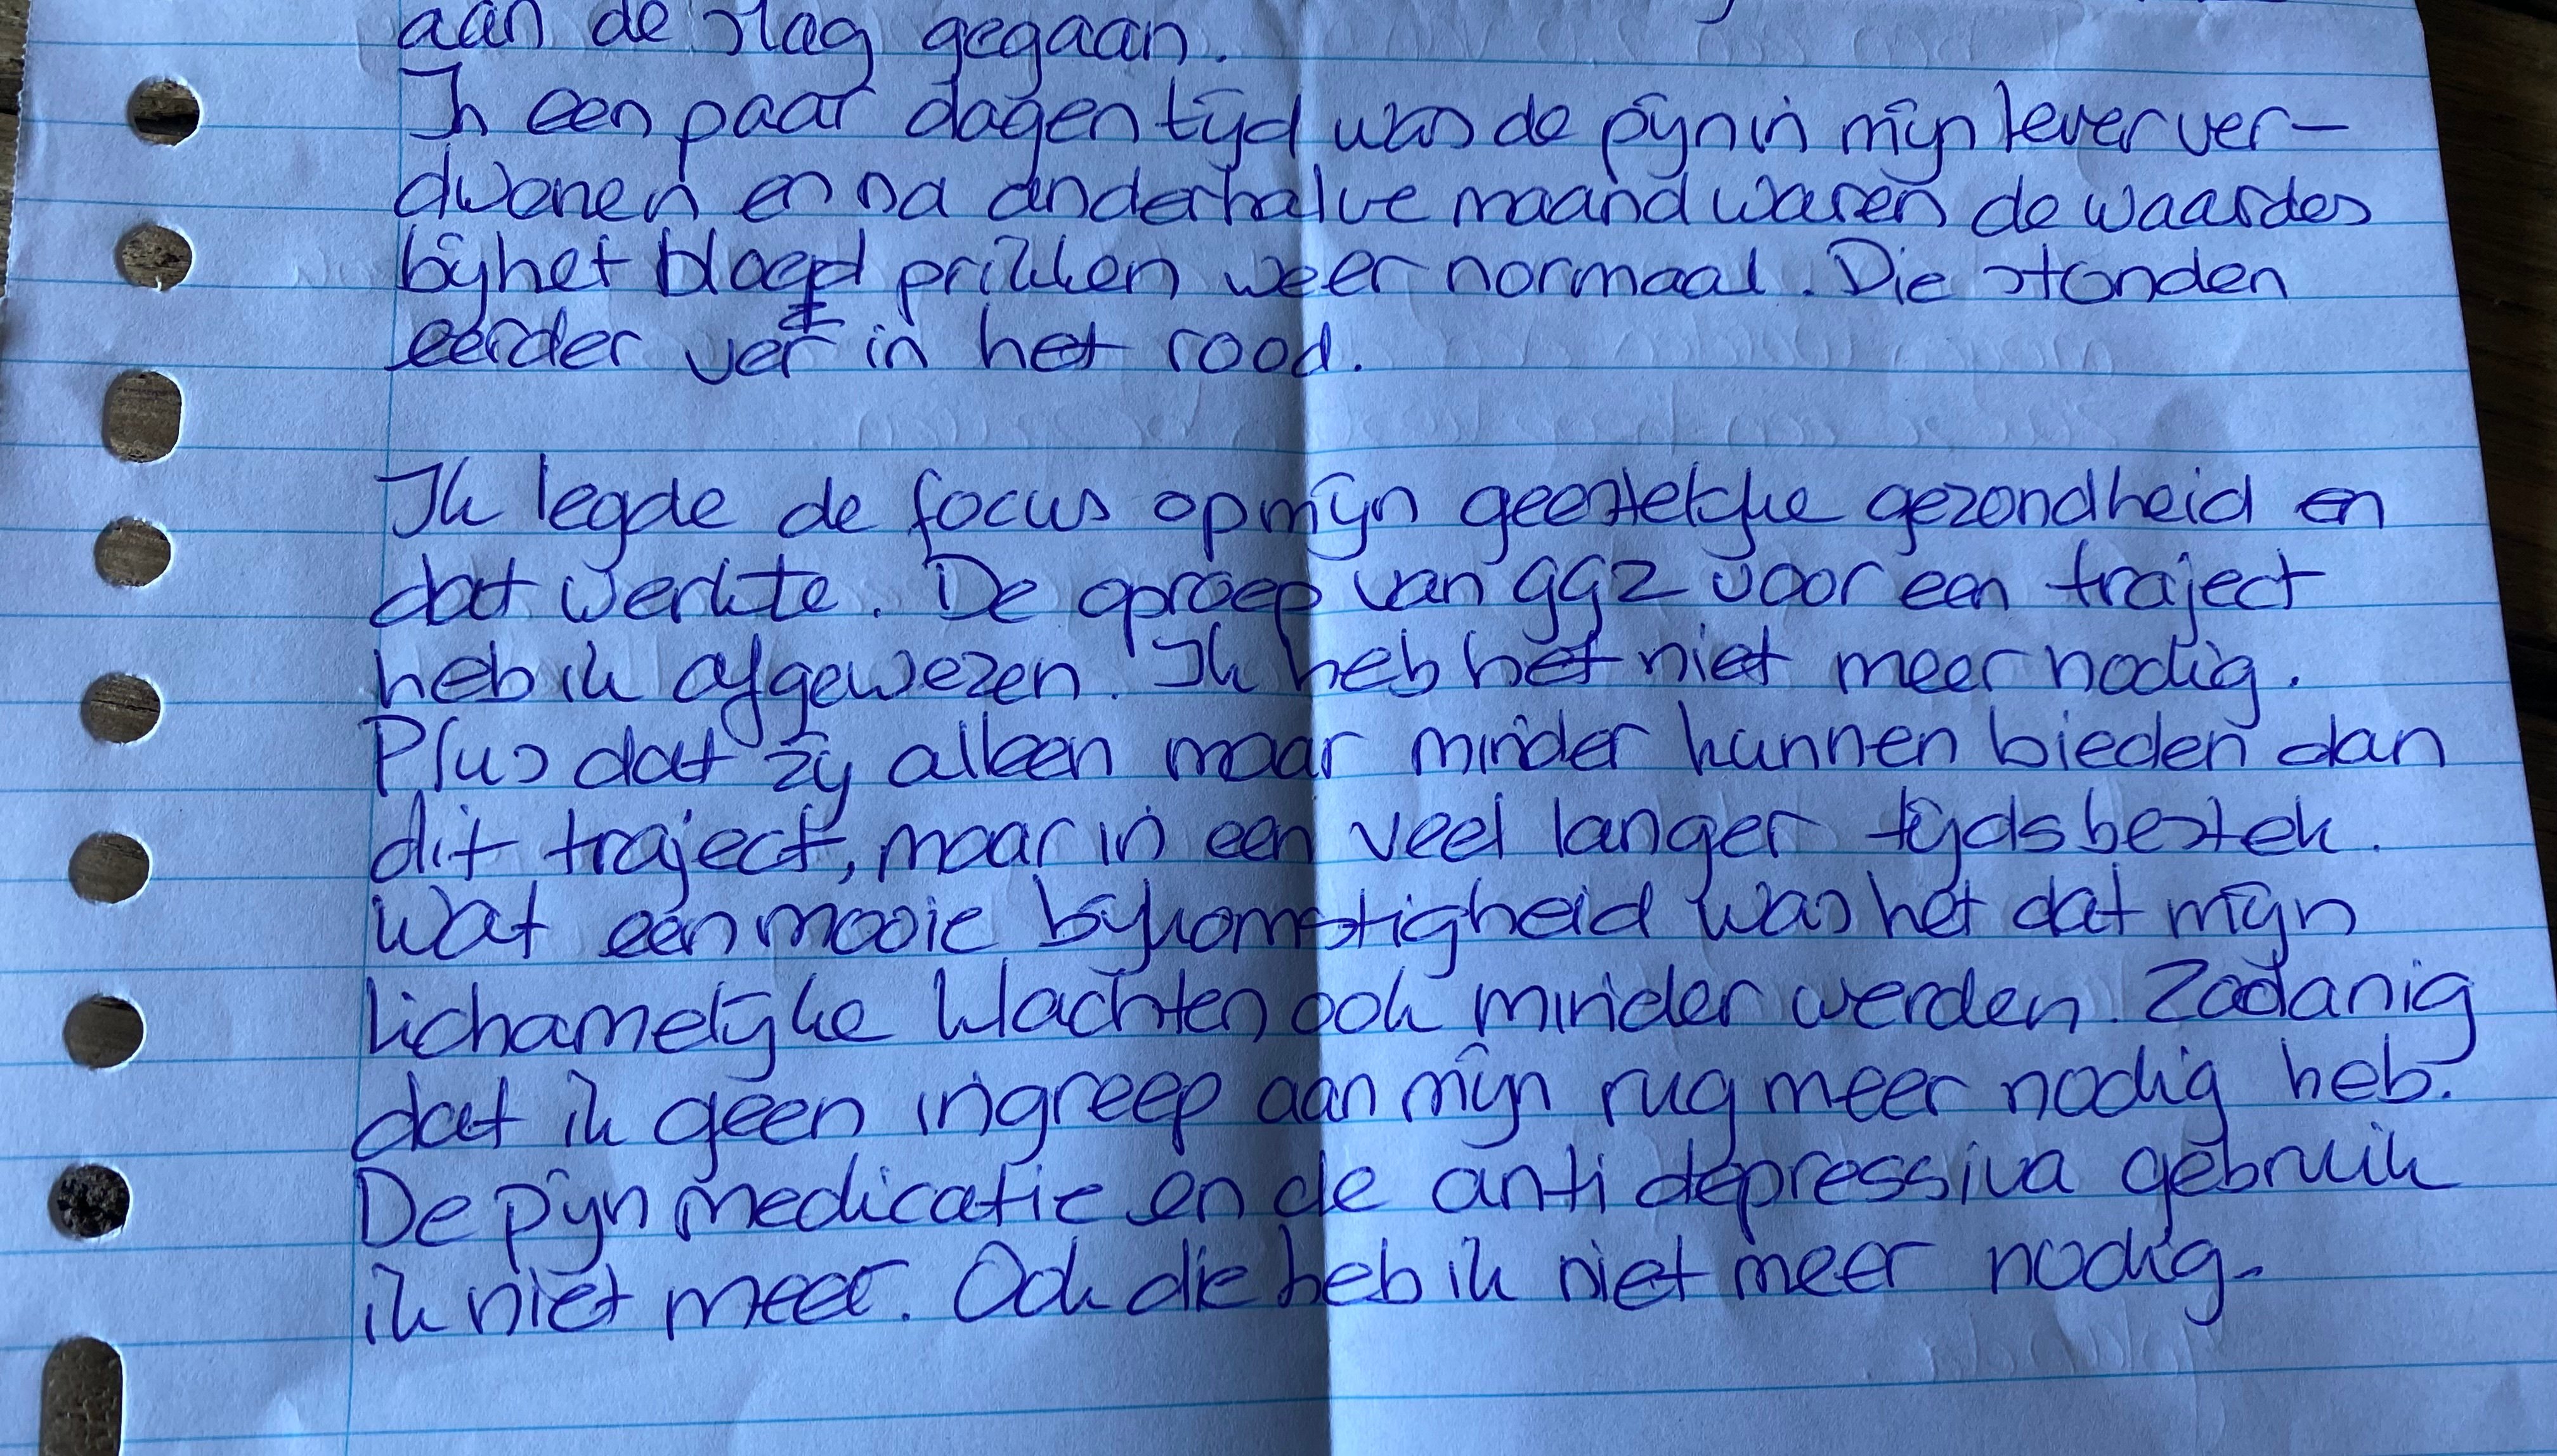 aan de slag gegaan.
In een paar dagen tijd was de pijn in mijn lever ver-
dwenen en na anderhalve maand waren de waardes
bij het bloed prikken weer normaal. Die stonden
eerder ver in het rood.
Ik legde de focus op mijn geestelijke gezondheid en
dat werkte. De oproep van ggz voor een traject
heb ik afgewezen. Ik heb het niet meer nodig.
Plus dat zij alleen maar minder kunnen bieden dan
dit traject, maar in een veel langer tijdsbestek.
Wat een mooie bijkomstigheid was het dat mijn
lichamelijke klachten ook minder werden. Zodanig
dat ik geen ingreep aan mijn rug meer nodig heb.
De pijn medicatie en de anti depressiva gebruik
ik niet meer. Ook die heb ik niet meer nodig.